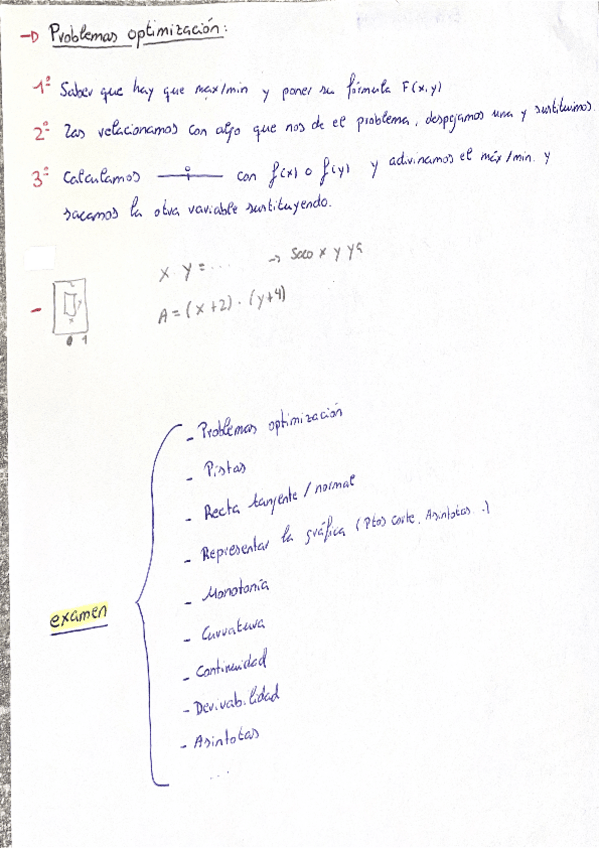 → Problemas optimización:
1º Saber que hay que max/min y poner su fórmula F(x,y)
2º Las relacionamos con algo que nos de el problema, despejamos una y sustituimos.
3º Calculamos 0 con f(x) o f(y) y adivinamos el máx/min. y
sacamos la otra variable sustituyendo.
x y = .... → Saco x y ya
A = (x+2) · (y+4)
- x
1
examen
- Problemas optimización
- Pistas
- Recta tanjente / normal
- Representar la gráfica (Ptos corte, Asintotas..)
- Monotonía
- Curvatura
- Continuidad
- Derivabilidad
- Asintotas
....